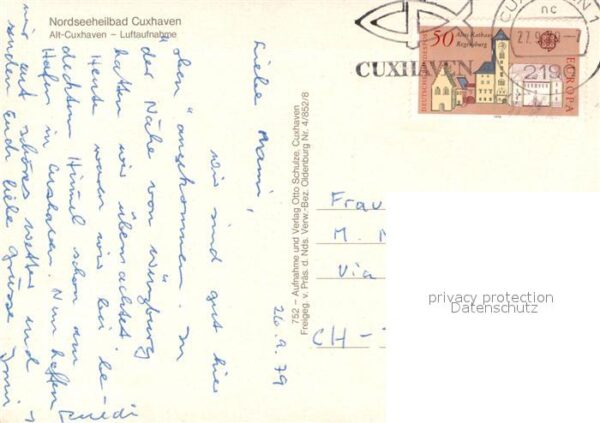 Nordseeheilbad Cuxhaven
Alt-Cuxhaven – Luftaufnahme
26.9.79
Liebe Mami,
wir sind gut hier
"oben" angekommen. In
der Nähe von Würzburg
hatten wir übernachtet.
Heute waren wir bei be-
decktem Himmel schon am
Hafen in Cuxhaven. Nun hoffen
wir auf schönes Wetter und
senden Euch liebe Grüsse
752 – Aufnahme und Verlag Otto Schulze, Cuxhaven
Freigeg. v. Präs. d. Nds. Verw.-Bez. Oldenburg Nr. 4/852/8
CUXHAVEN
CUXHAVEN 1
nc
27.9.79
219
50
Altes Rathaus
Regensburg
DEUTSCHE BUNDESPOST
EUROPA
Frau
M.
Via
CH -
privacy protection
Datenschutz